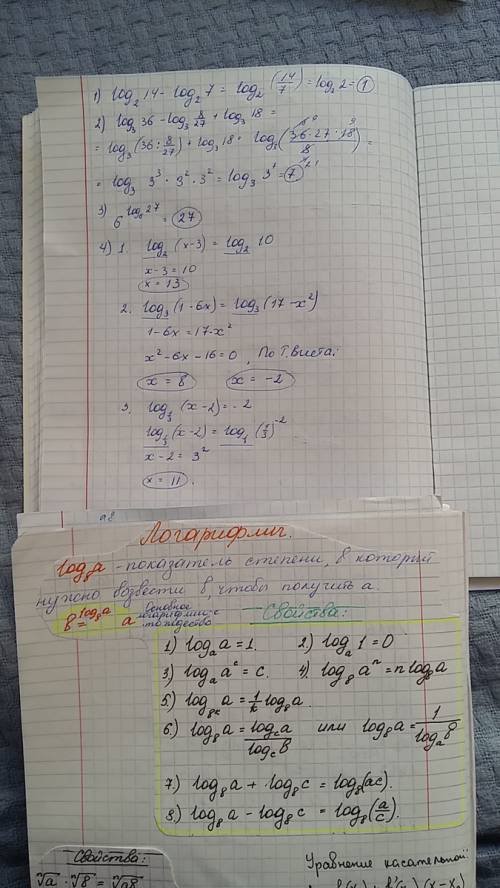 1) log₂ 14 - log₂ 7 = log₂ (14/7) = log₂ 2 = 1
2) log₃ 36 - log₃ 8/27 + log₃ 18 =
= log₃ (36 : 8/27) + log₃ 18 = log₃ (36 · 27 · 18 / 8) =
= log₃ 3³ · 3² · 3² = log₃ 3⁷ = 7
3) 6^(log₆ 27) = 27
4) 1. log₂ (x-3) = log₂ 10
x - 3 = 10
x = 13
2. log₃ (1 - 6x) = log₃ (17 - x²)
1 - 6x = 17 - x²
x² - 6x - 16 = 0, По Т. Виета:
x = 8 x = -2
3. log_(1/3) (x - 2) = -2
log_(1/3) (x - 2) = log_(1/3) (1/3)⁻²
x - 2 = 3²
x = 11.
Логарифмы.
log_в a - показатель степени, в который
нужно возвести в, чтобы получить a.
в^(log_в a) = a Основное логарифмич-е тождество
Свойства:
1) log_a a = 1. 2) log_a 1 = 0
3) log_a a^c = c. 4) log_в aⁿ = n log_в a
5) log_(в^k) a = 1/k log_в a.
6) log_в a = log_c a / log_c в или log_в a = 1 / log_a в
7) log_в a + log_в c = log_в (ac).
8) log_в a - log_в c = log_в (a/c).
Свойства:
Уравнение касательной
ⁿ√a · ⁿ√в = ⁿ√aв